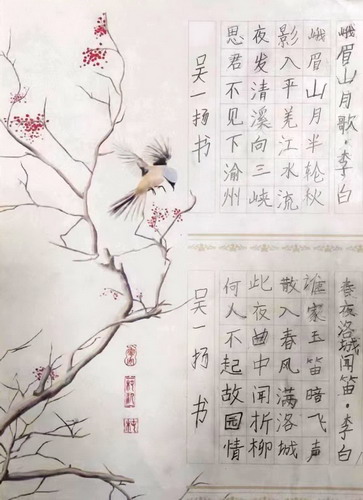 峨眉山月歌·李白
峨眉山月半轮秋
影入平羌江水流
夜发清溪向三峡
思君不见下渝州
吴一扬书
春夜洛城闻笛·李白
谁家玉笛暗飞声
散入春风满洛城
此夜曲中闻折柳
何人不起故园情
吴一扬书